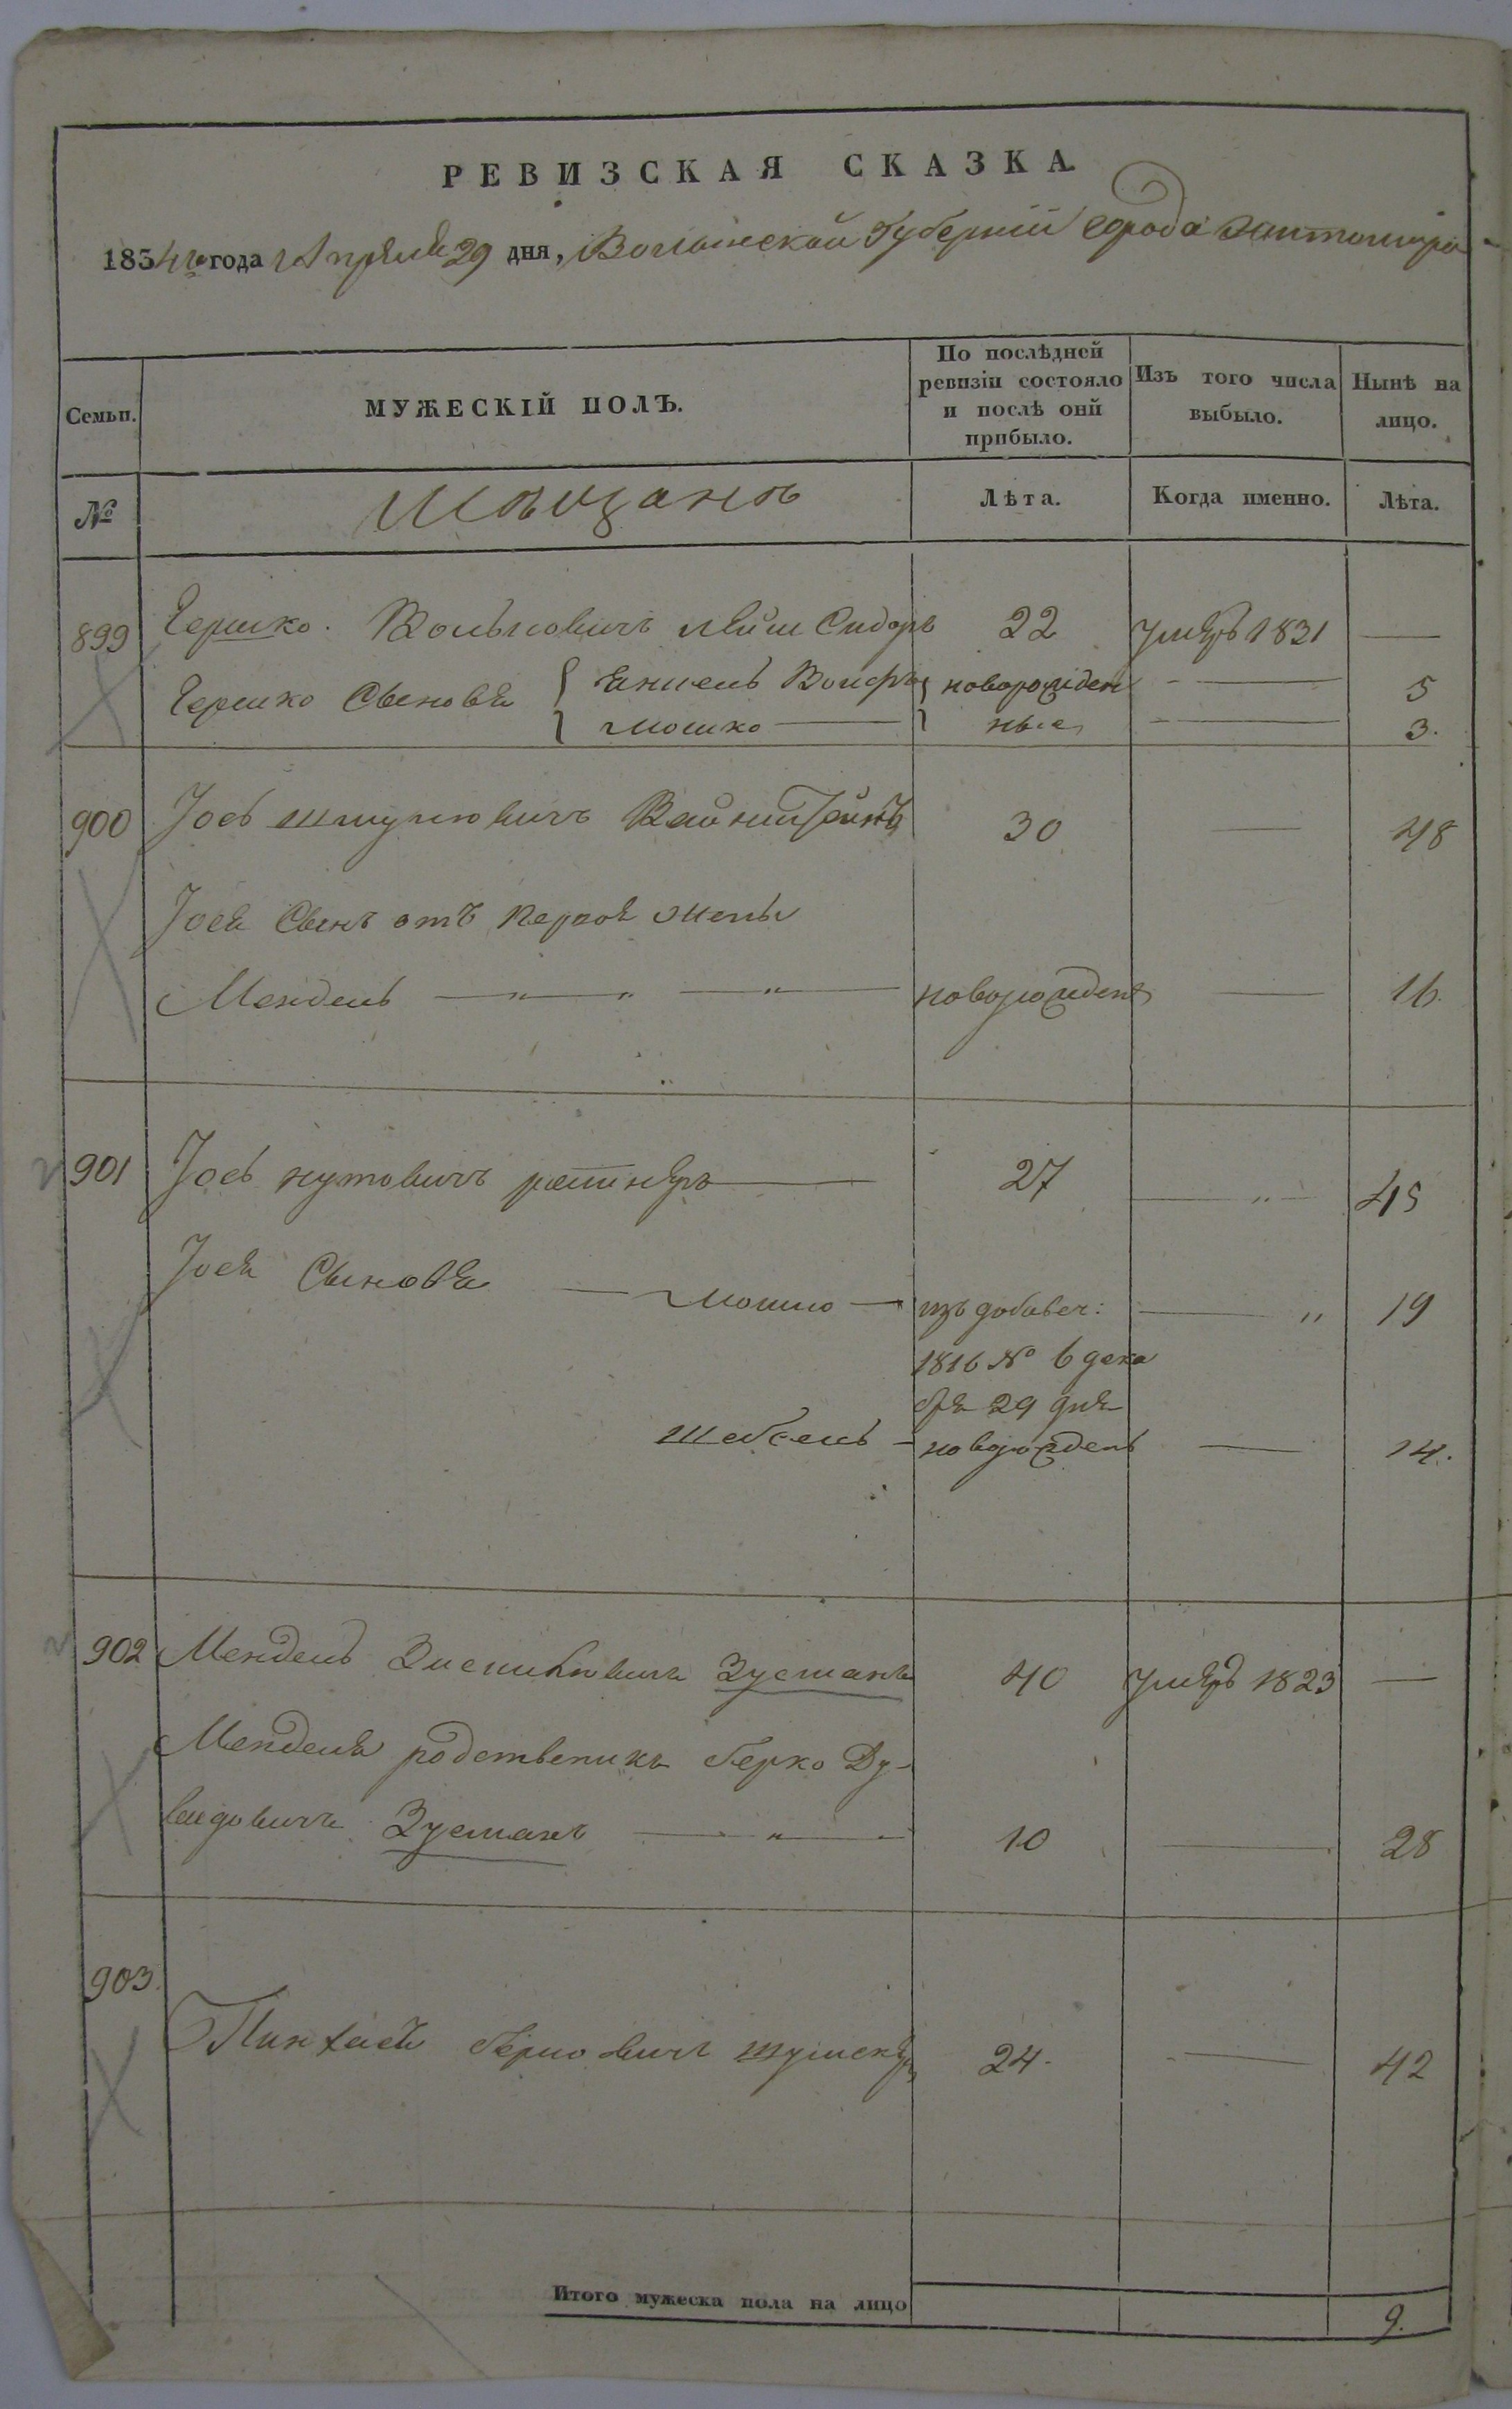 РЕВИЗСКАЯ СКАЗКА
1834го года Апреля 29 дня, Волынской Губерніи города Житомира
Семьи.
МУЖЕСКІЙ ПОЛЪ.
По послѣдней ревизіи состояло и послѣ оній прибыло.
Изъ того числа выбыло.
Нынѣ на лицо.
№
Мѣщанѣ
Лѣта.
Когда именно.
Лѣта.
899 Гершко Вольковичъ 22 умеръ 1831 —
Гершко Сыновя Янкель Вольфъ новорожден — 5
Мошко — ные — 3.
900 Іось Шмулювичъ Вайнштейнъ 30 — 48
Іося Сынъ отъ первой жены
Мендель — " — " — " — новорожденъ — 16.
901 Іось Нутовичъ — 27 — " — 45
Іося Сыновя — Мошко — изъ добавоч: — " 19
1816 № 6 дека
бря 29 дня
Шабсель — новорожденъ — 14.
902 Мендель Зусманъ 40 умеръ 1823 —
Менделя родственикъ Берко Ду-
видовичъ Зусманъ — " — 10 — 28
903. Пинхасъ Берковичъ 24. — 42
Итого мужеска пола на лицо 9.